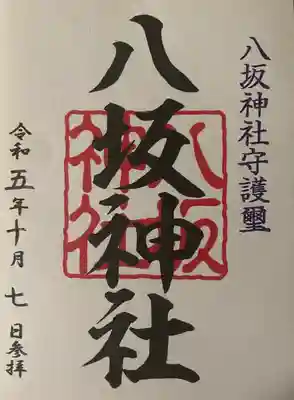 八坂神社守護璽
八坂神社
八坂神社
令和五年十月七日参拝